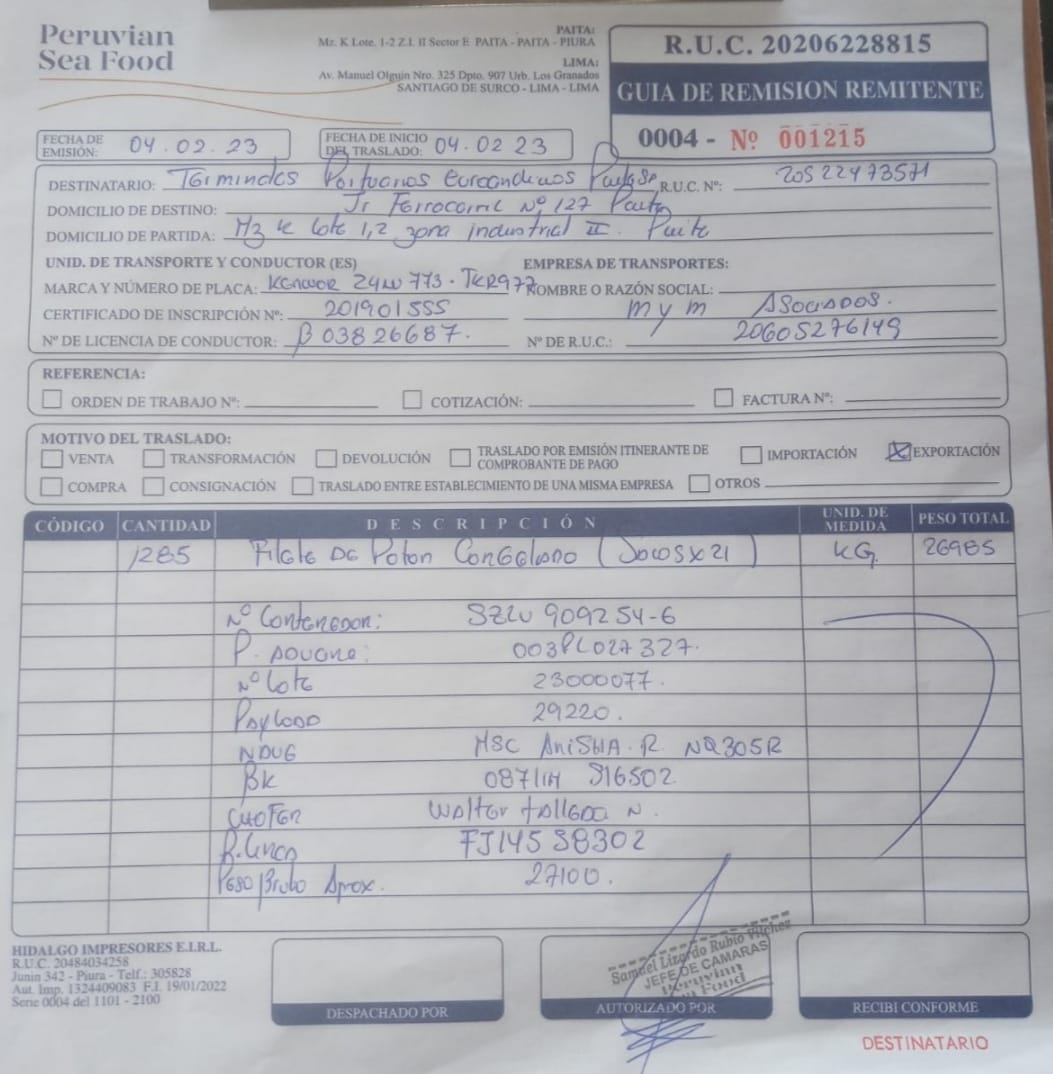 Peruvian
Sea Food
PAITA:
Mz. K Lote. 1-2 Z.I. II Sector E PAITA - PAITA - PIURA
LIMA:
Av. Manuel Olguin Nro. 325 Dpto. 907 Urb. Los Granados
SANTIAGO DE SURCO - LIMA - LIMA
R.U.C. 20206228815
GUIA DE REMISION REMITENTE
0004 - Nº 001215
FECHA DE EMISIÓN: 04.02.23
FECHA DE INICIO DEL TRASLADO: 04.02 23
DESTINATARIO: Términales Portuarios Euroandinos Paita SA R.U.C. Nº: 20522473571
DOMICILIO DE DESTINO: Jr Ferrocarril Nº 127 Paita
DOMICILIO DE PARTIDA: Mz K lote 1,2 zona industrial II. Paita
UNID. DE TRANSPORTE Y CONDUCTOR (ES)
EMPRESA DE TRANSPORTES:
MARCA Y NÚMERO DE PLACA: Kenwor 773. NOMBRE O RAZÓN SOCIAL:
CERTIFICADO DE INSCRIPCIÓN Nº: 201901555 m y m Asociados.
Nº DE LICENCIA DE CONDUCTOR: B03826687. Nº DE R.U.C.: 20605276149
REFERENCIA:
ORDEN DE TRABAJO Nº: COTIZACIÓN: FACTURA Nº:
MOTIVO DEL TRASLADO:
VENTA TRANSFORMACIÓN DEVOLUCIÓN TRASLADO POR EMISIÓN ITINERANTE DE COMPROBANTE DE PAGO IMPORTACIÓN X EXPORTACIÓN
COMPRA CONSIGNACIÓN TRASLADO ENTRE ESTABLECIMIENTO DE UNA MISMA EMPRESA OTROS
CÓDIGO CANTIDAD DESCRIPCIÓN UNID. DE MEDIDA PESO TOTAL
1285 Filete De Poton Congelado (Sacos x 21) KG. 26985
Nº Contenedor: SZLU 909254-6
P. Aduana: 003PL027327.
Nº lote 23000077.
Payload 29220.
Nave MSC Anisha. R. NQ305R
Bk 0871IH S16502
Chofer Walter N.
P. Linea FJ14558302
Peso Bruto Aprox. 27100.
HIDALGO IMPRESORES E.I.R.L.
R.U.C. 20484034258
Junin 342 - Piura - Telf.: 305828
Aut. Imp. 1324409083 F.I. 19/01/2022
Serie 0004 del 1101 - 2100
DESPACHADO POR
Samuel Lizardo Rubio Vilchez
JEFE DE CAMARAS
Peruvian
Sea Food
AUTORIZADO POR
RECIBI CONFORME
DESTINATARIO